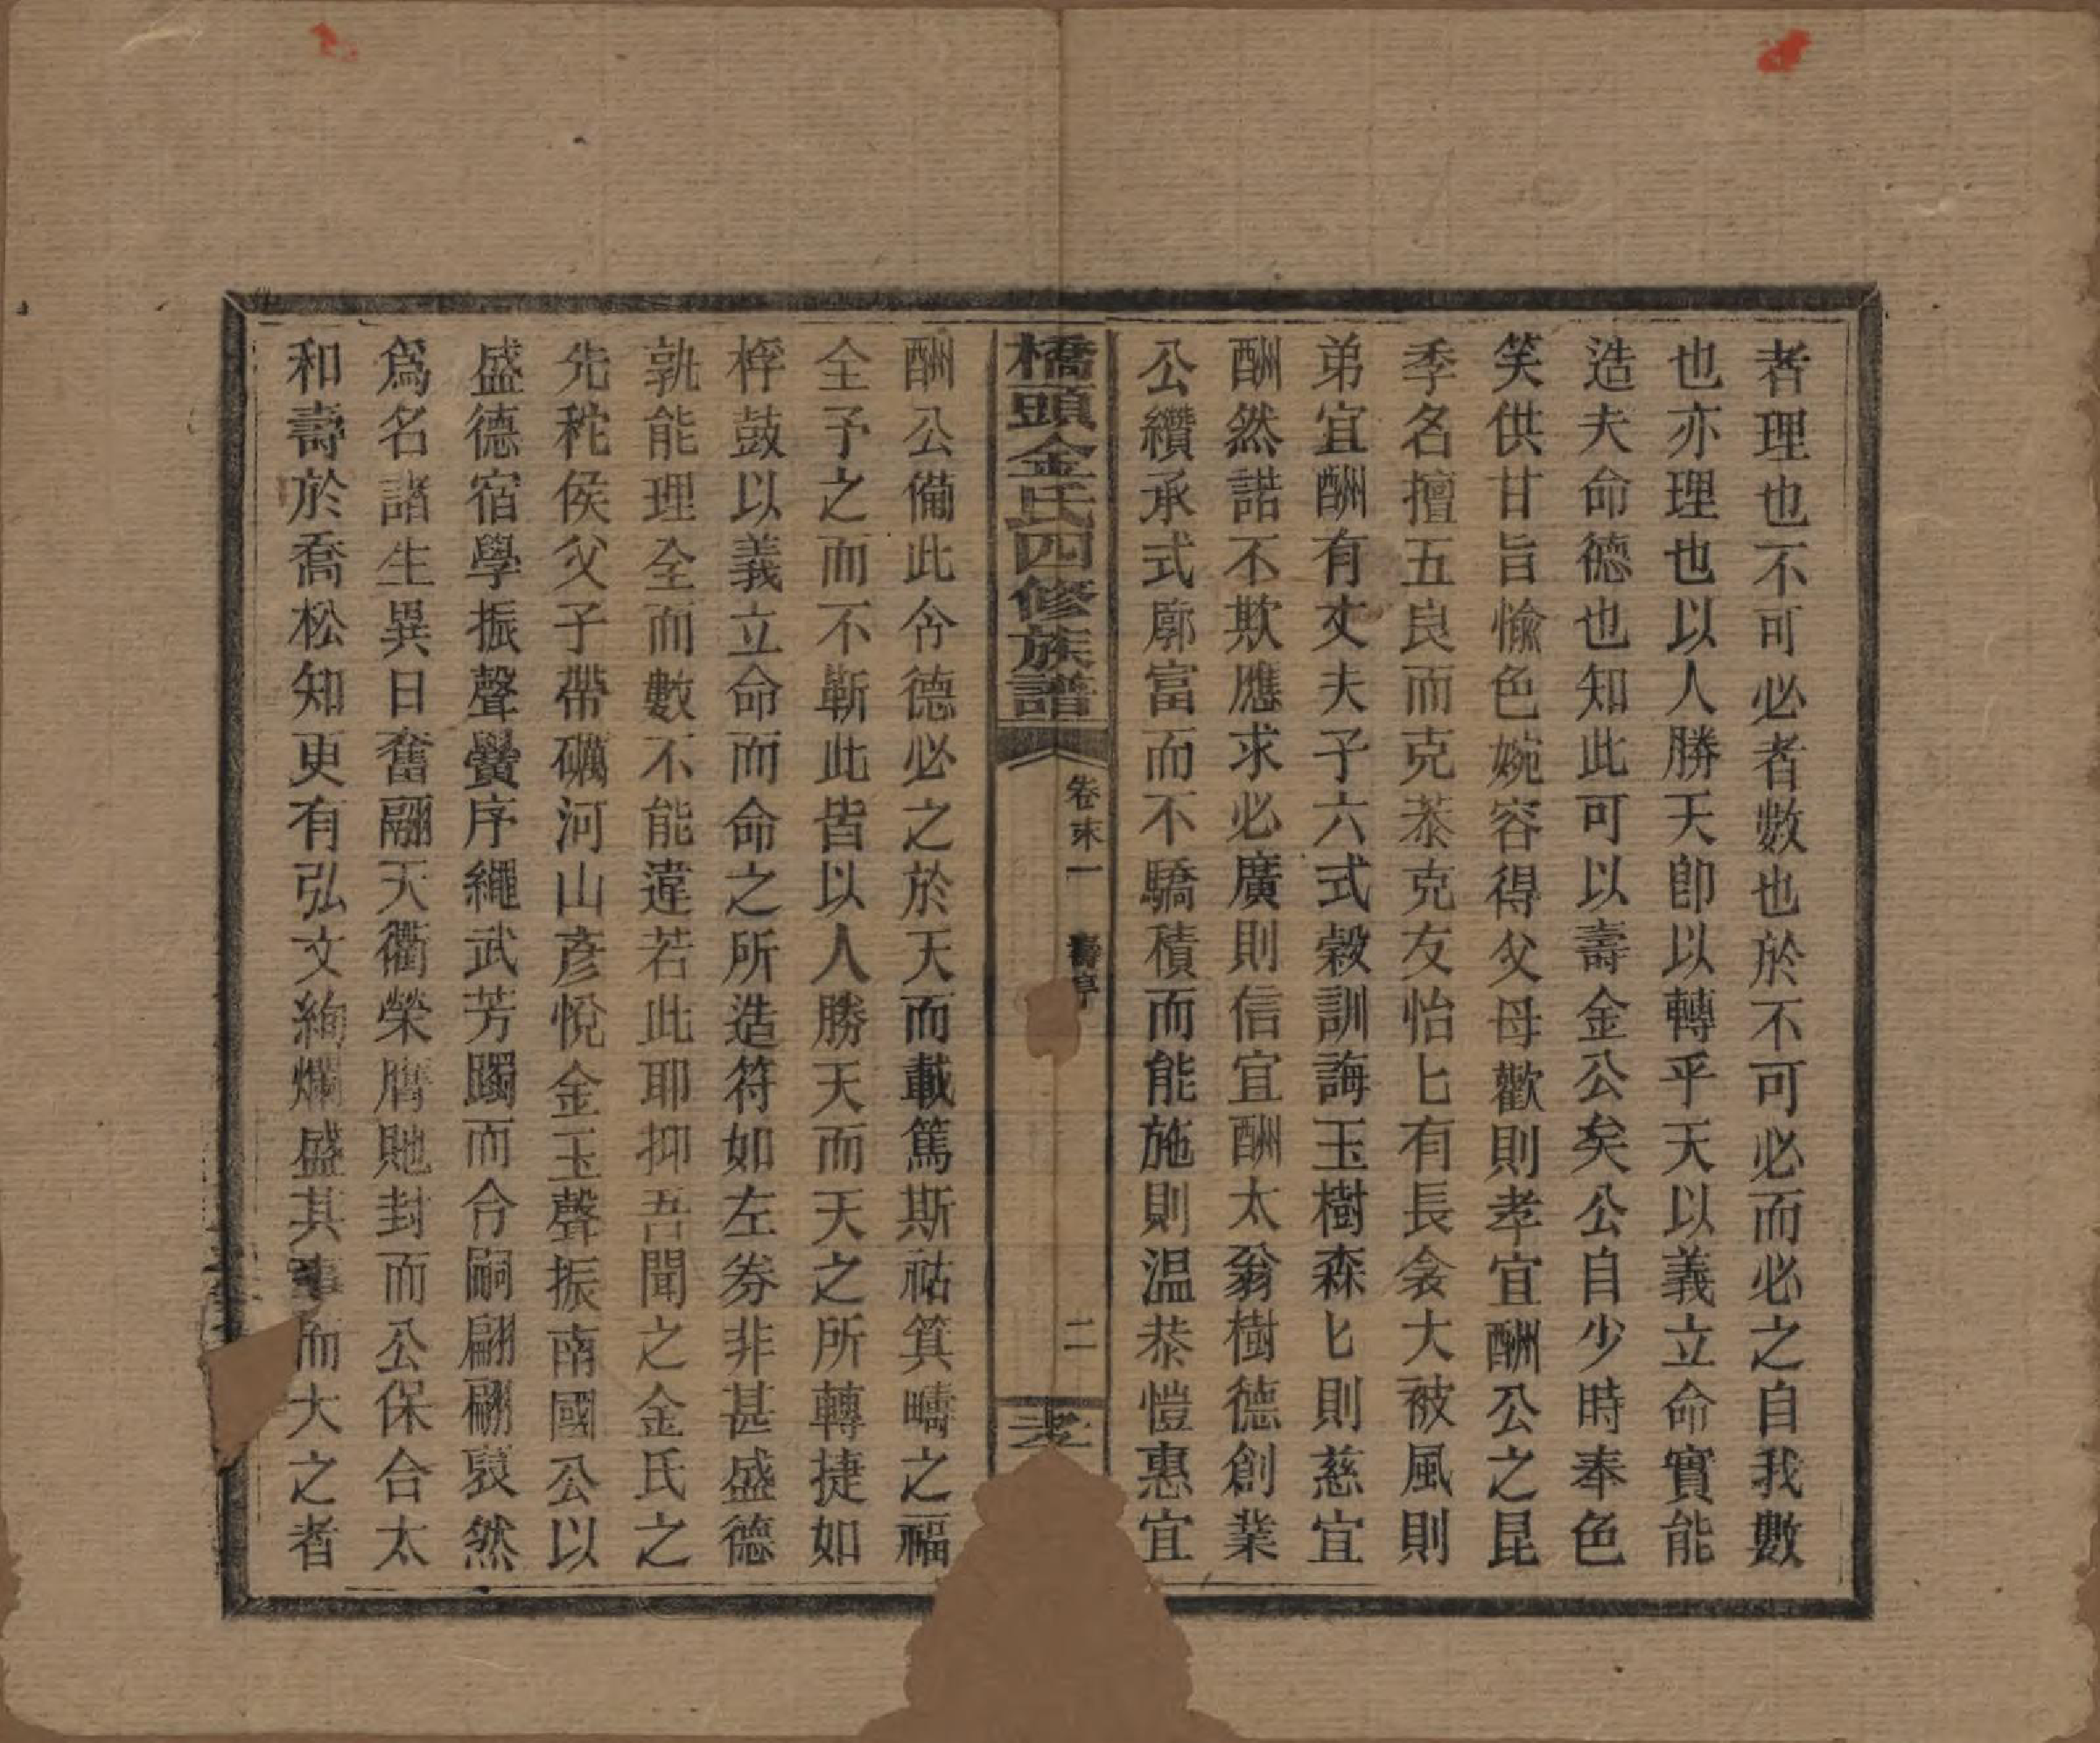 者理也不可必者數也於不可必而必之自我數
也亦理也以人勝天卽以轉乎天以義立命實能
造夫命德也知此可以壽金公矣公自少時奉色
笑供甘旨愉色婉容得父母歡則孝宜酬公之昆
季名擅五良而克恭克友怡匕有長衾大被風則
弟宜酬有丈夫子六式穀訓誨玉樹森匕則慈宜
酬然諾不欺應求必廣則信宜酬太翁樹德創業
公纘承式廓富而不驕積而能施則温恭愷惠宜
橋頭金氏四修族譜
卷末一 壽序
二
孝
酬公備此令德必之於天而載篤斯祜箕疇之福
全予之而不靳此皆以人勝天而天之所轉捷如
桴鼓以義立命而命之所造符如左券非甚盛德
孰能理全而數不能違若此耶抑吾聞之金氏之
先秺侯父子帶礪河山彥悅金玉聲振南國公以
盛德宿學振聲黌序繩武芳躅而令嗣翩翩裒然
爲名諸生異日奮翮天衢榮膺貤封而公保合太
和壽於喬松知更有弘文絢爛盛其事而大之者